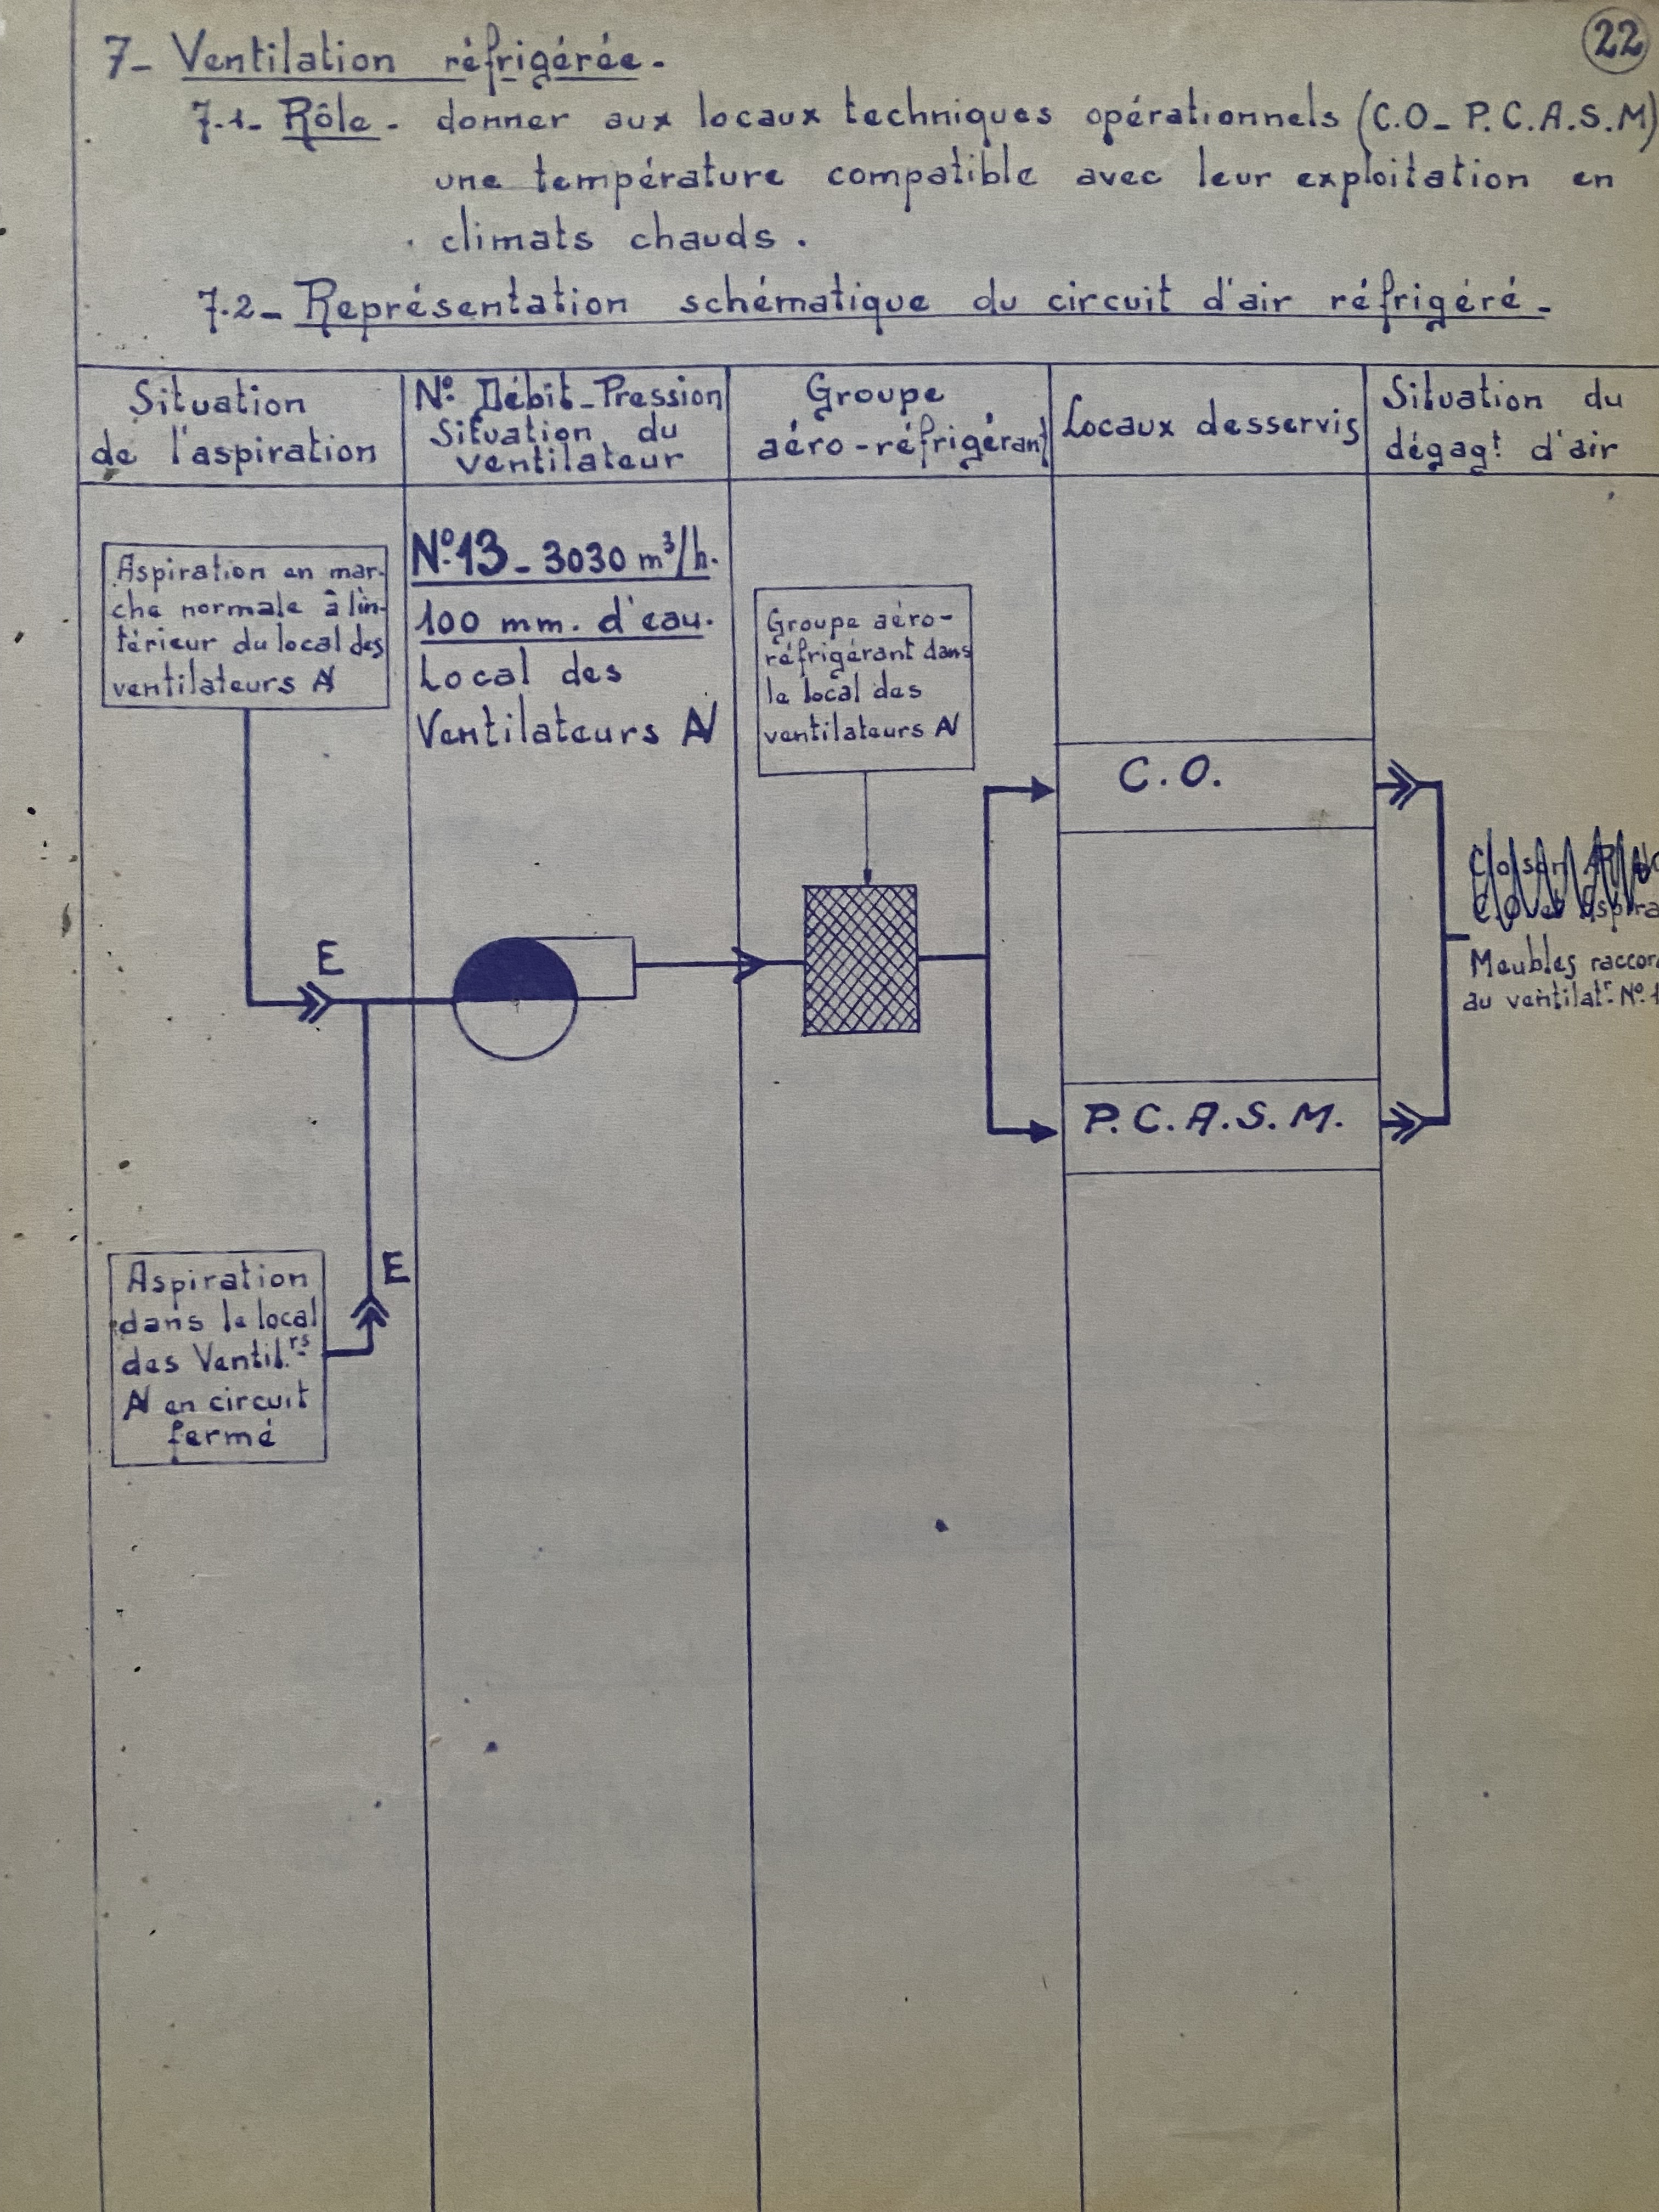 22
7- Ventilation réfrigérée.
7.1- Rôle - donner aux locaux techniques opérationnels (C.O- P.C.A.S.M)
une température compatible avec leur exploitation en
climats chauds.
7.2- Représentation schématique du circuit d'air réfrigéré.
Situation
de l'aspiration
N° Débit-Pression
Situation du
ventilateur
Groupe
aéro-réfrigérant
Locaux desservis
Situation du
dégagt. d'air
Aspiration en mar-
che normale à l'in-
térieur du local des
ventilateurs AV
N°13 - 3030 m³/h.
100 mm. d'eau.
Local des
Ventilateurs AV
Groupe aéro-
réfrigérant dans
le local des
ventilateurs AV
C.O.
E
Meubles raccor
au ventilatr. N°1
P.C.A.S.M.
E
Aspiration
dans le local
des Ventil.rs
AV en circuit
fermé